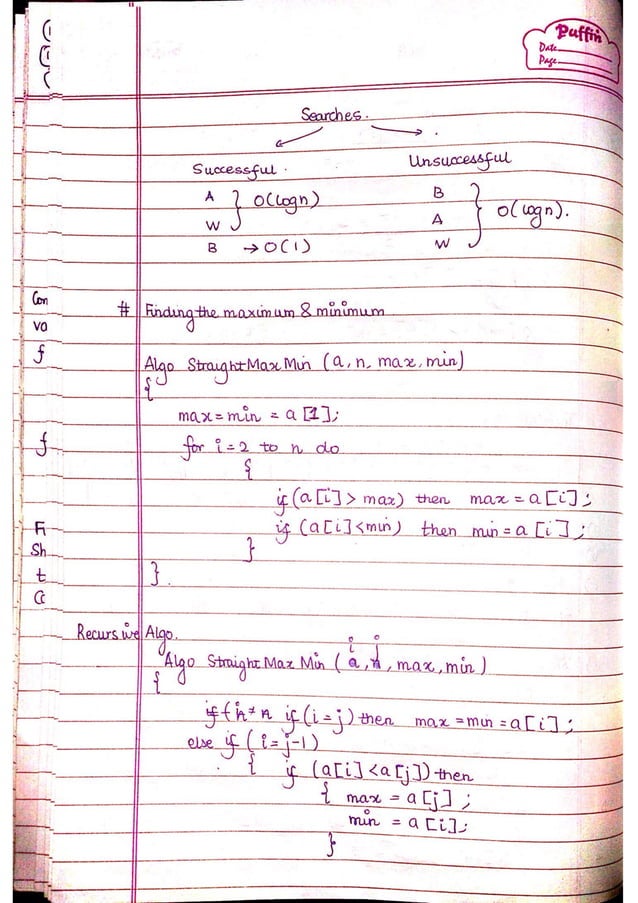 Puffin
Date
Page
Searches.
Successful. Unsuccessful
A B
W } O(logn) A } O(logn).
B → O(1) W
# Finding the maximum & minimum
Algo StraightMaxMin (a, n, max, min)
{
max = min = a[1];
for i=2 to n do
{
if (a[i] > max) then max = a[i];
if (a[i] < min) then min = a[i];
}
}.
Recursive Algo.
i j
Algo Straight Max Min (a, n, max, min)
{
if (i=j) then max = min = a[i];
else if (i=j-1)
{ if (a[i] < a[j]) then
{ max = a[j];
min = a[i];
}
Con
va
f
f
Fi
Sh
t